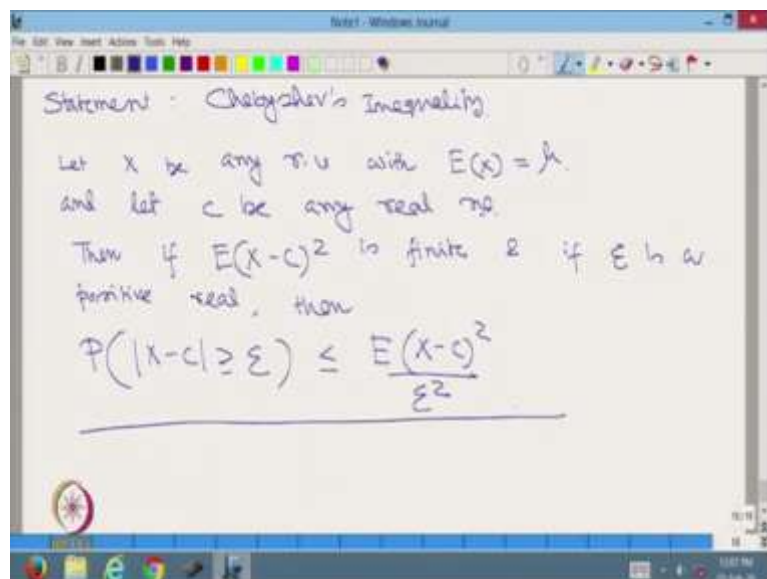 Note1 - Windows Journal
File Edit View Insert Actions Tools Help
Statement - Chebyshev's Inequality
Let X be any r.v with E(X) = μ.
and let c be any real no.
Then if E(X-c)² is finite & if ε is a
positive real, then
P(|X-c| ≥ ε) ≤ E(X-c)² / ε²